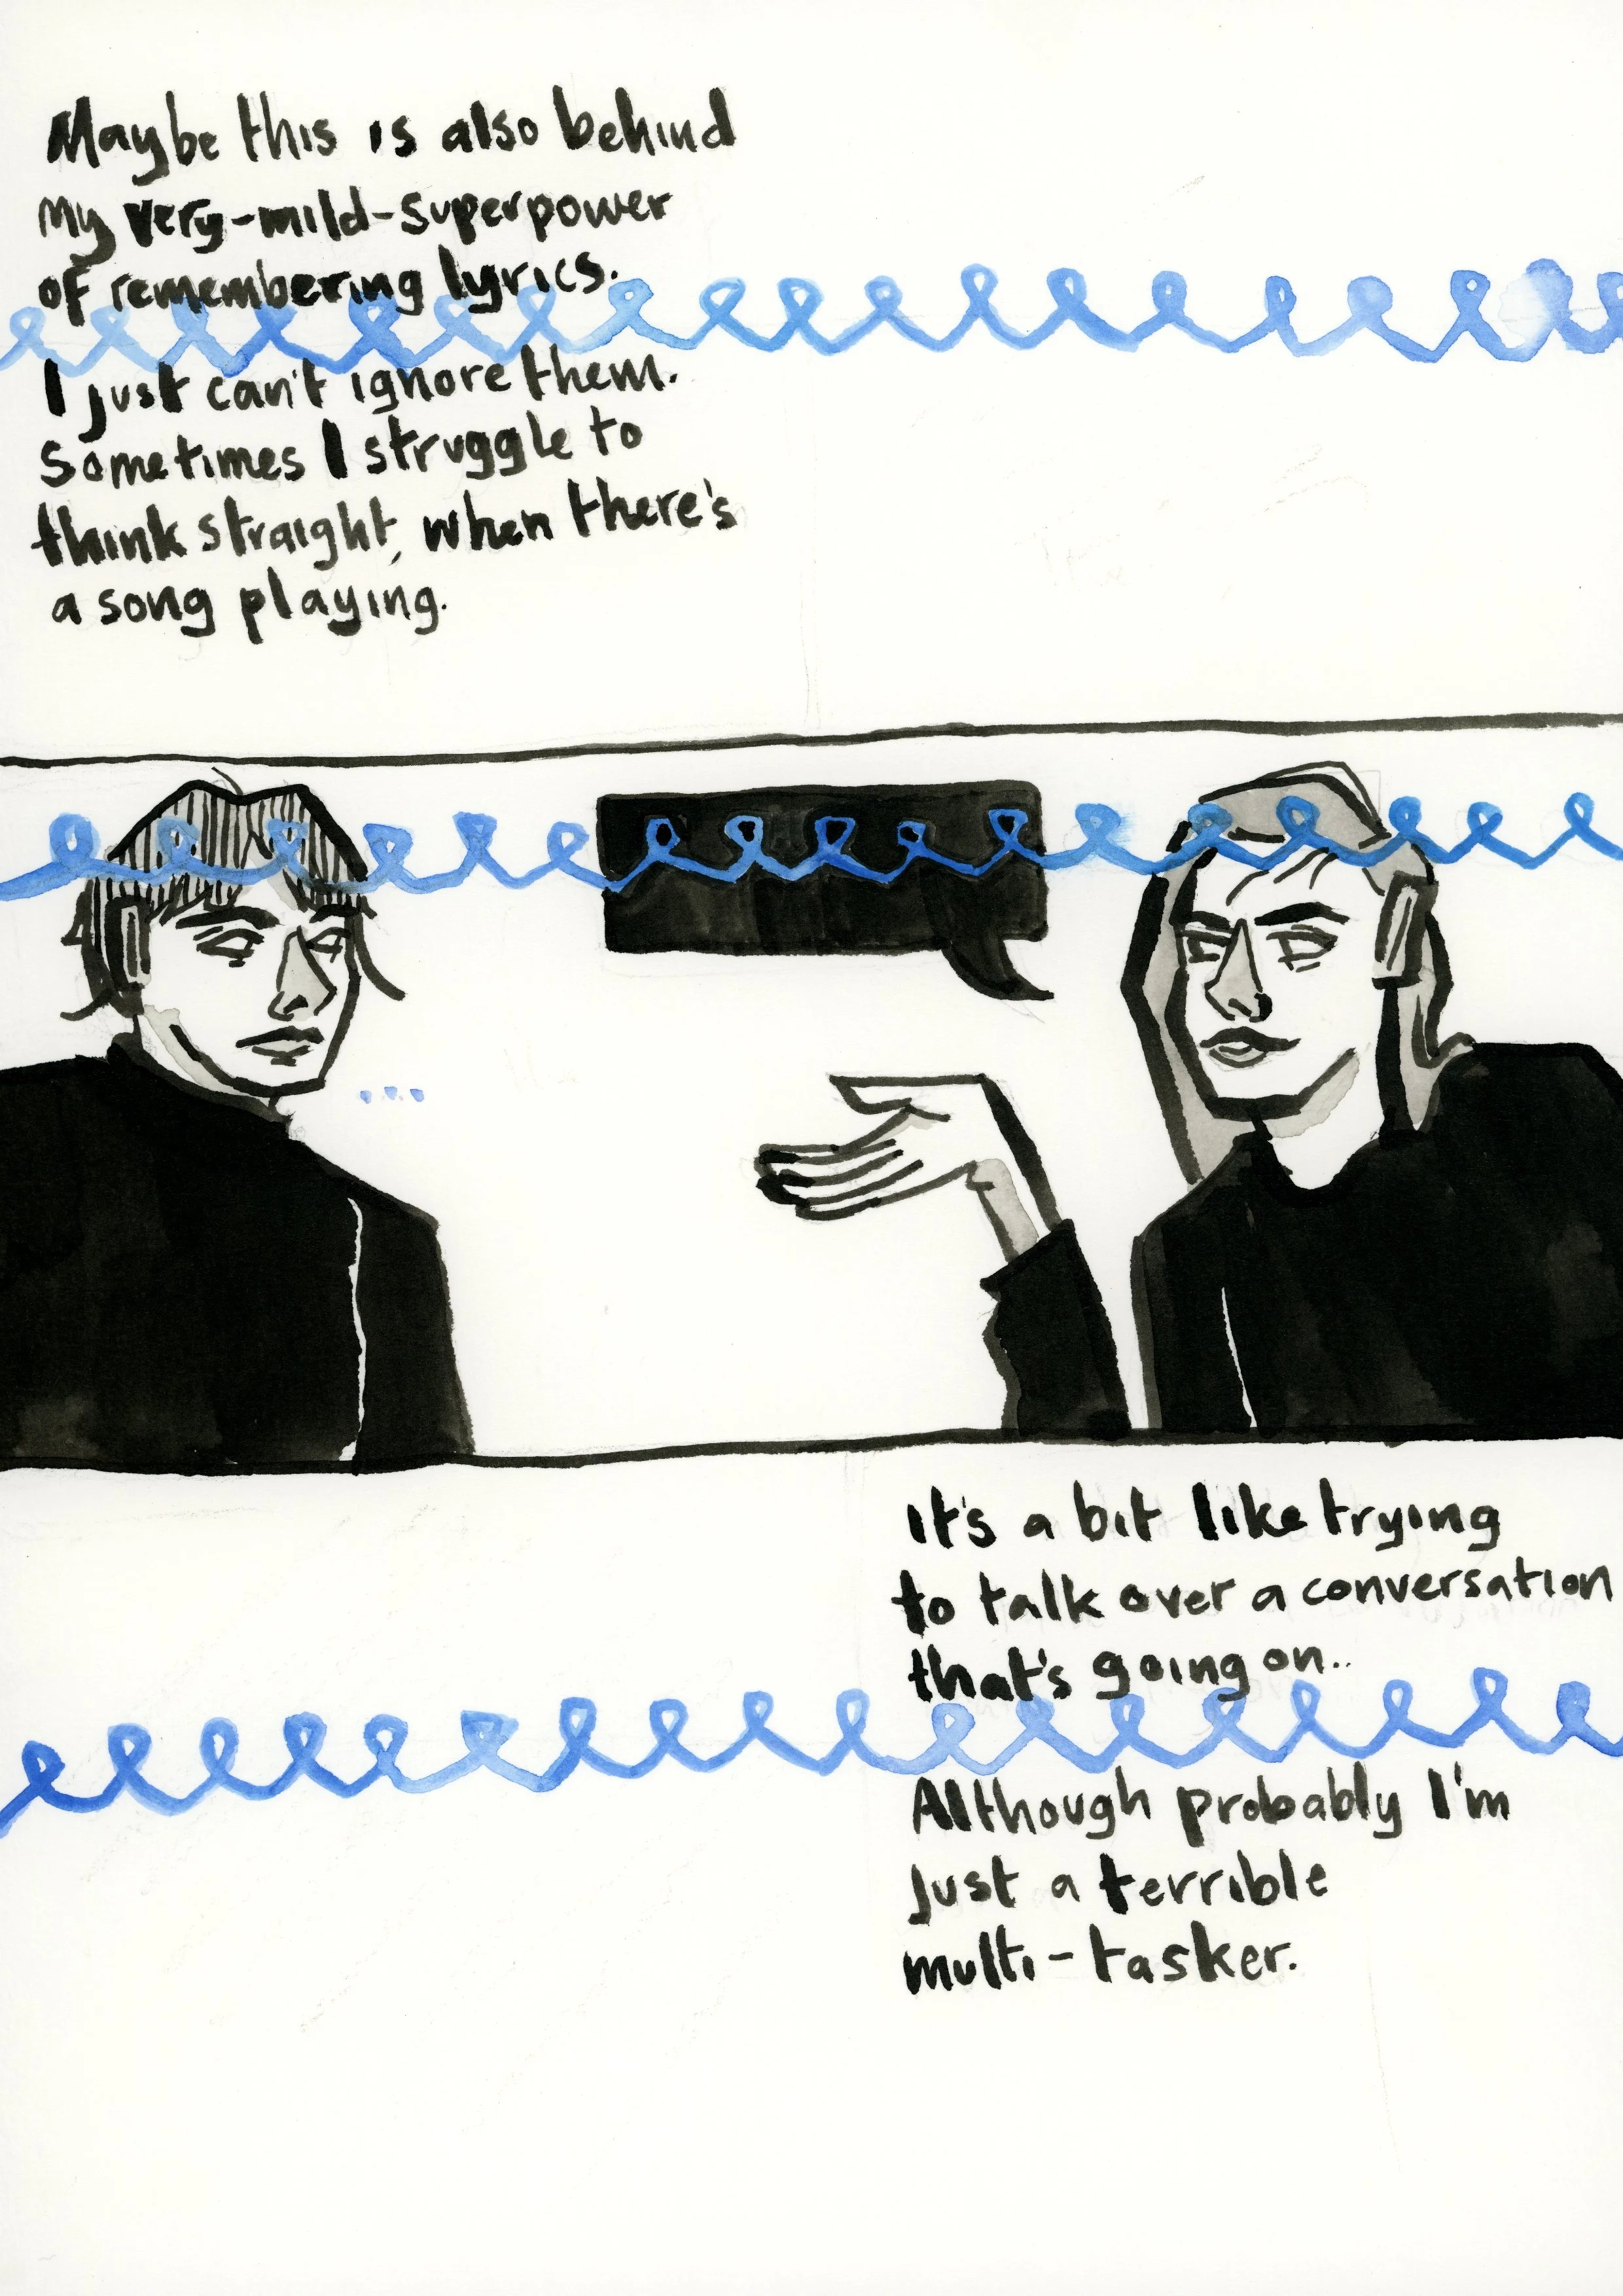 Maybe this is also behind
my very-mild-superpower
of remembering lyrics.
I just can't ignore them.
Sometimes I struggle to
think straight, when there's
a song playing.
...
It's a bit like trying
to talk over a conversation
that's going on..
Although probably I'm
just a terrible
multi-tasker.